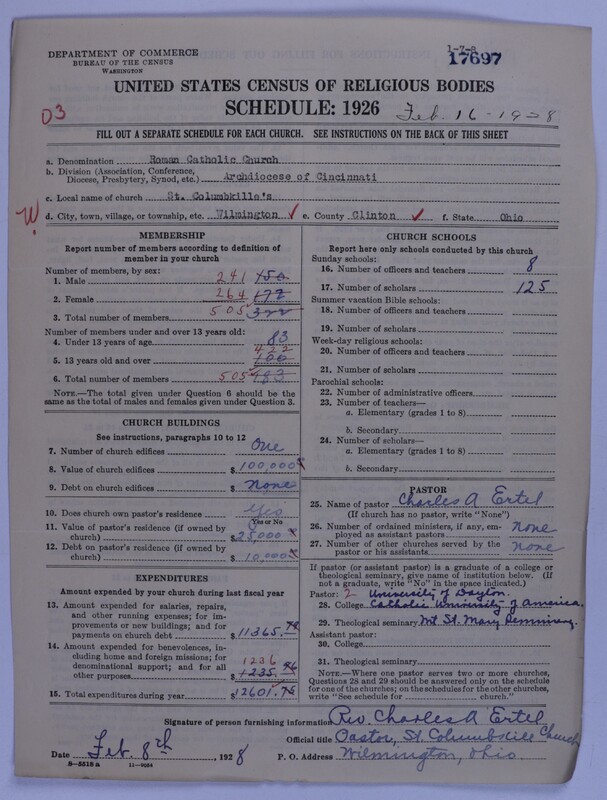 DEPARTMENT OF COMMERCE
BUREAU OF THE CENSUS
WASHINGTON
1-7-a
17697
UNITED STATES CENSUS OF RELIGIOUS BODIES
SCHEDULE: 1926
Feb. 16-1928
D3
FILL OUT A SEPARATE SCHEDULE FOR EACH CHURCH. SEE INSTRUCTIONS ON THE BACK OF THIS SHEET
a. Denomination Roman Catholic Church
b. Division (Association, Conference, Diocese, Presbytery, Synod, etc.) Archdiocese of Cincinnati
c. Local name of church St. Columbkille's
W d. City, town, village, or township, etc. Wilmington ✓ e. County Clinton ✓ f. State Ohio
MEMBERSHIP
Report number of members according to definition of
member in your church
Number of members, by sex:
1. Male 241 150
2. Female 264 172
3. Total number of members 505 322
Number of members under and over 13 years old:
4. Under 13 years of age 83
5. 13 years old and over 422 100
6. Total number of members 505 183
NOTE.—The total given under Question 6 should be the
same as the total of males and females given under Question 3.
CHURCH BUILDINGS
See instructions, paragraphs 10 to 12
7. Number of church edifices One
8. Value of church edifices $100,000
9. Debt on church edifices $ None
10. Does church own pastor's residence Yes
Yes or No
11. Value of pastor's residence (if owned by
church) $25,000
12. Debt on pastor's residence (if owned by
church) $10,000
EXPENDITURES
Amount expended by your church during last fiscal year
13. Amount expended for salaries, repairs,
and other running expenses; for im-
provements or new buildings; and for
payments on church debt $11365.79
14. Amount expended for benevolences,
including home and foreign missions; for
denominational support; and for all
other purposes 1236 $1235.96
15. Total expenditures during year $12601.75
CHURCH SCHOOLS
Report here only schools conducted by this church
Sunday schools:
16. Number of officers and teachers 8
17. Number of scholars 125
Summer vacation Bible schools:
18. Number of officers and teachers
19. Number of scholars
Week-day religious schools:
20. Number of officers and teachers
21. Number of scholars
Parochial schools:
22. Number of administrative officers
23. Number of teachers—
a. Elementary (grades 1 to 8)
b. Secondary
24. Number of scholars—
a. Elementary (grades 1 to 8)
b. Secondary
PASTOR
25. Name of pastor Charles A Ertel
(If church has no pastor, write "None")
26. Number of ordained ministers, if any, em-
ployed as assistant pastors none
27. Number of other churches served by the
pastor or his assistants none
If pastor (or assistant pastor) is a graduate of a college or
theological seminary, give name of institution below. (If
not a graduate, write "No" in the space indicated.)
Pastor: 2 University of Dayton.
28. College Catholic University of America.
29. Theological seminary Mt St. Mary Seminary.
Assistant pastor:
30. College
31. Theological seminary
NOTE.—Where one pastor serves two or more churches,
Questions 28 and 29 should be answered only on the schedule
for one of the churches; on the schedules for the other churches,
write "See schedule for church."
Signature of person furnishing information Rev. Charles A Ertel
Official title Pastor, St. Columbkill Church
Date Feb. 8th, 1928 P. O. Address Wilmington, Ohio.
8-5518 a 11-9024